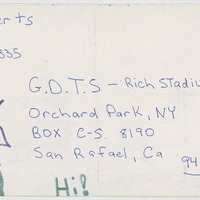 ts
335
G.D.T.S - Rich Stadiu
Orchard Park, NY
BOX C-S. 8190
San Rafael, Ca
94
Hi!